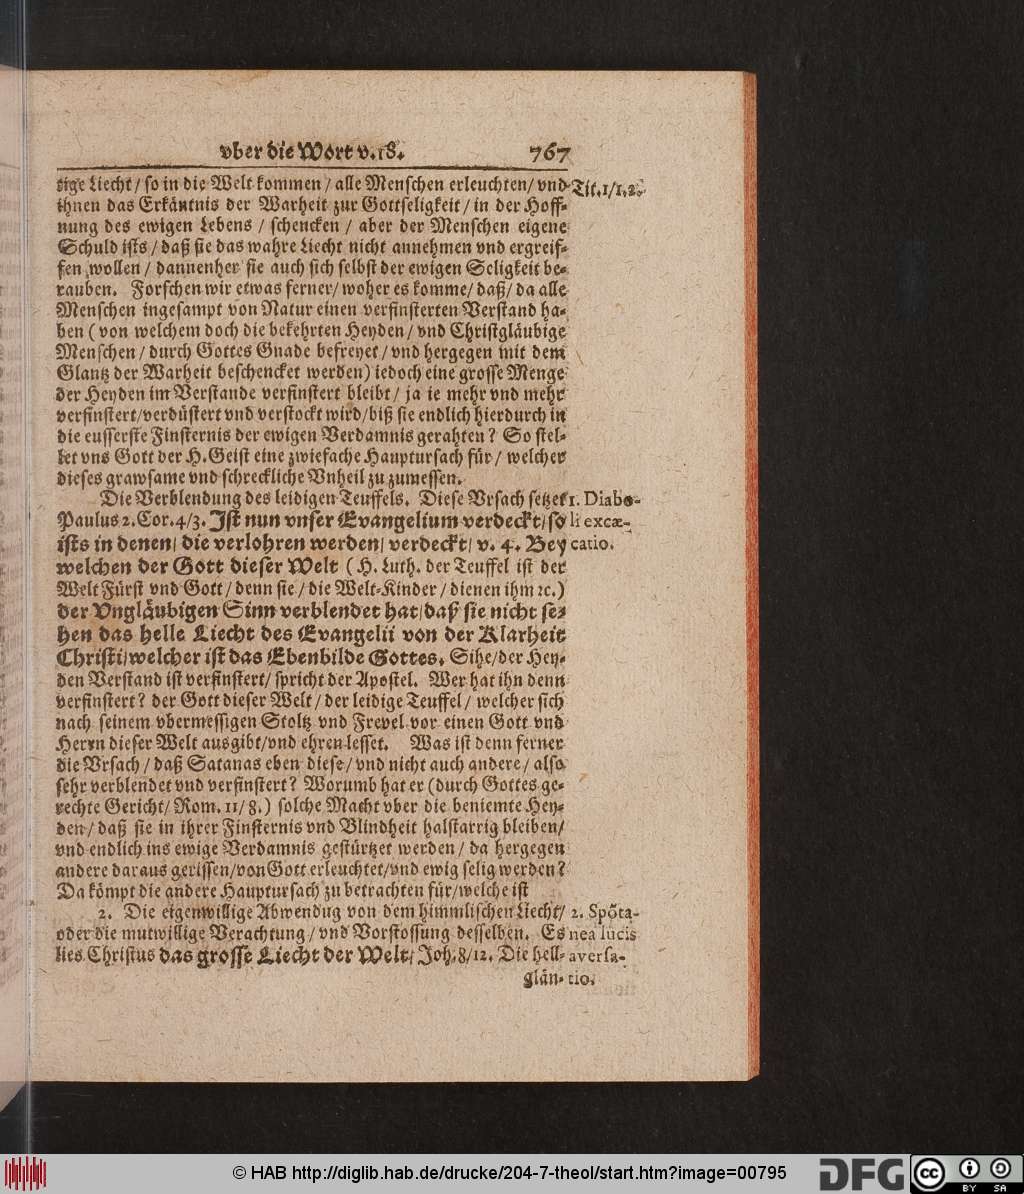 vber die Wort v. 18. 767
tige Liecht / so in die Welt kommen / alle Menschen erleuchten / vnd Tit. 1/1.2.
ihnen das Erkäntnis der Warheit zur Gottseligkeit / in der Hoff-
nung des ewigen Lebens / schencken / aber der Menschen eigene
Schuld ists / daß sie das wahre Liecht nicht annehmen vnd ergreif-
fen wollen / dannenher sie auch sich selbst der ewigen Seligkeit be-
rauben. Forschen wir etwas ferner / woher es komme / daß / da alle
Menschen ingesampt von Natur einen verfinsterten Verstand ha-
ben (von welchem doch die bekehrten Heyden / vnd Christgläubige
Menschen / durch Gottes Gnade befreyet / vnd hergegen mit dem
Glantz der Warheit beschencket werden) iedoch eine grosse Menge
der Heyden im Verstande verfinstert bleibt / ja ie mehr vnd mehr
verfinstert / verdüstert vnd verstockt wird / biß sie endlich hierdurch in
die eusserste Finsternis der ewigen Verdamnis gerahten? So stel-
let vns Gott der H. Geist eine zwiefache Hauptursach für / welcher
dieses grawsame vnd schreckliche Vnheil zu zumessen.
Die Verblendung des leidigen Teuffels. Diese Vrsach setzet 1. Diabo-
Paulus 2. Cor. 4/3. Ist nun vnser Evangelium verdeckt / so li excæ-
ists in denen / die verlohren werden / verdeckt / v. 4. Bey catio.
welchen der Gott dieser Welt (H. Luth. der Teuffel ist der
Welt Fürst vnd Gott / denn sie / die Welt-Kinder / dienen ihm ꝛc.)
der Vngläubigen Sinn verblendet hat / daß sie nicht se-
hen das helle Liecht des Evangelii von der Klarheit
Christi / welcher ist das Ebenbilde Gottes. Sihe / der Hey-
den Verstand ist verfinstert / spricht der Apostel. Wer hat ihn denn
verfinstert? der Gott dieser Welt / der leidige Teuffel / welcher sich
nach seinem vbermessigen Stoltz vnd Frevel vor einen Gott vnd
Herrn dieser Welt ausgibt / vnd ehren lesset. Was ist denn ferner
die Vrsach / daß Satanas eben diese / vnd nicht auch andere / also
sehr verblendet vnd verfinstert? Worumb hat er (durch Gottes ge-
rechte Gericht / Rom. 11/8.) solche Macht vber die beniemte Hey-
den / daß sie in ihrer Finsternis vnd Blindheit halstarrig bleiben /
vnd endlich ins ewige Verdamnis gestürtzet werden / da hergegen
andere daraus gerissen / von Gott erleuchtet / vnd ewig selig werden?
Da kömpt die andere Hauptursach zu betrachten für / welche ist
2. Die eigenwillige Abwendũg von dem himmlischen Liecht / 2. Spõta-
oder die mutwillige Verachtung / vnd Vorstossung desselben. Es nea lucis
lies Christus das grosse Liecht der Welt / Joh. 8/12. Die hell- aversa-
glän- tio.
© HAB http://diglib.hab.de/drucke/204-7-theol/start.htm?image=00795
DFG
cc BY SA